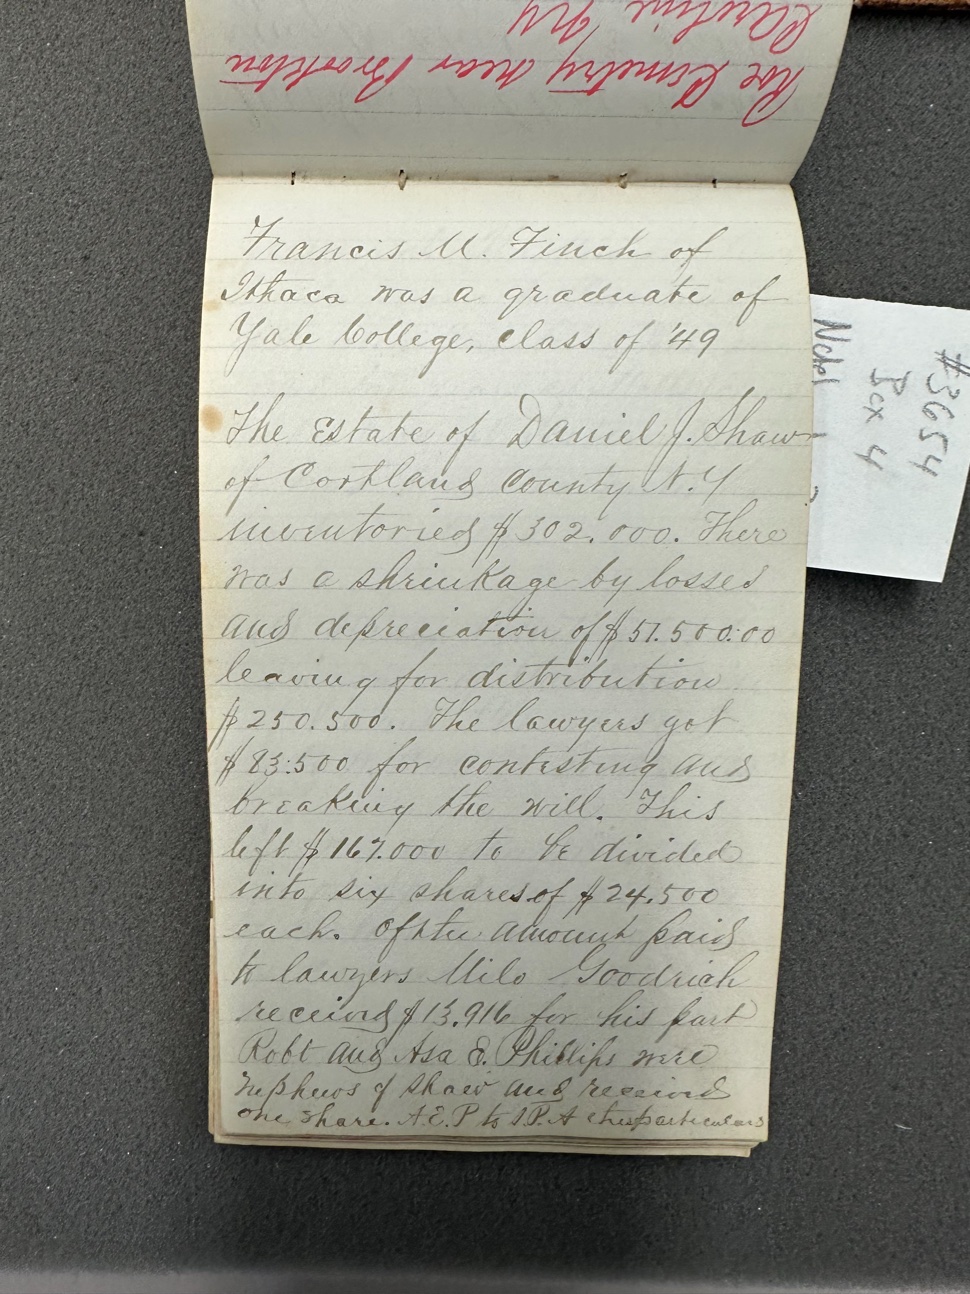 Roe Cemetry near Brookton
Caroline NY
Francis M. Finch of
Ithaca was a graduate of
Yale College, class of '49
The Estate of Daniel J. Shaw
of Cortland County N.Y
inventoried $302.000. There
was a shrinkage by losses
and depreciation of $51.500.00
leaving for distribution
$250.500. The lawyers got
$83.500 for contesting and
breaking the will. This
left $167.000 to be divided
into six shares of $24.500
each. Of the amount paid
to lawyers Milo Goodrich
received $13.916 for his part
Robt and Asa E. Phillips were
nephews of Shaw and received
one share. A.E.P to D.P.A particulars
#3654
Box 4